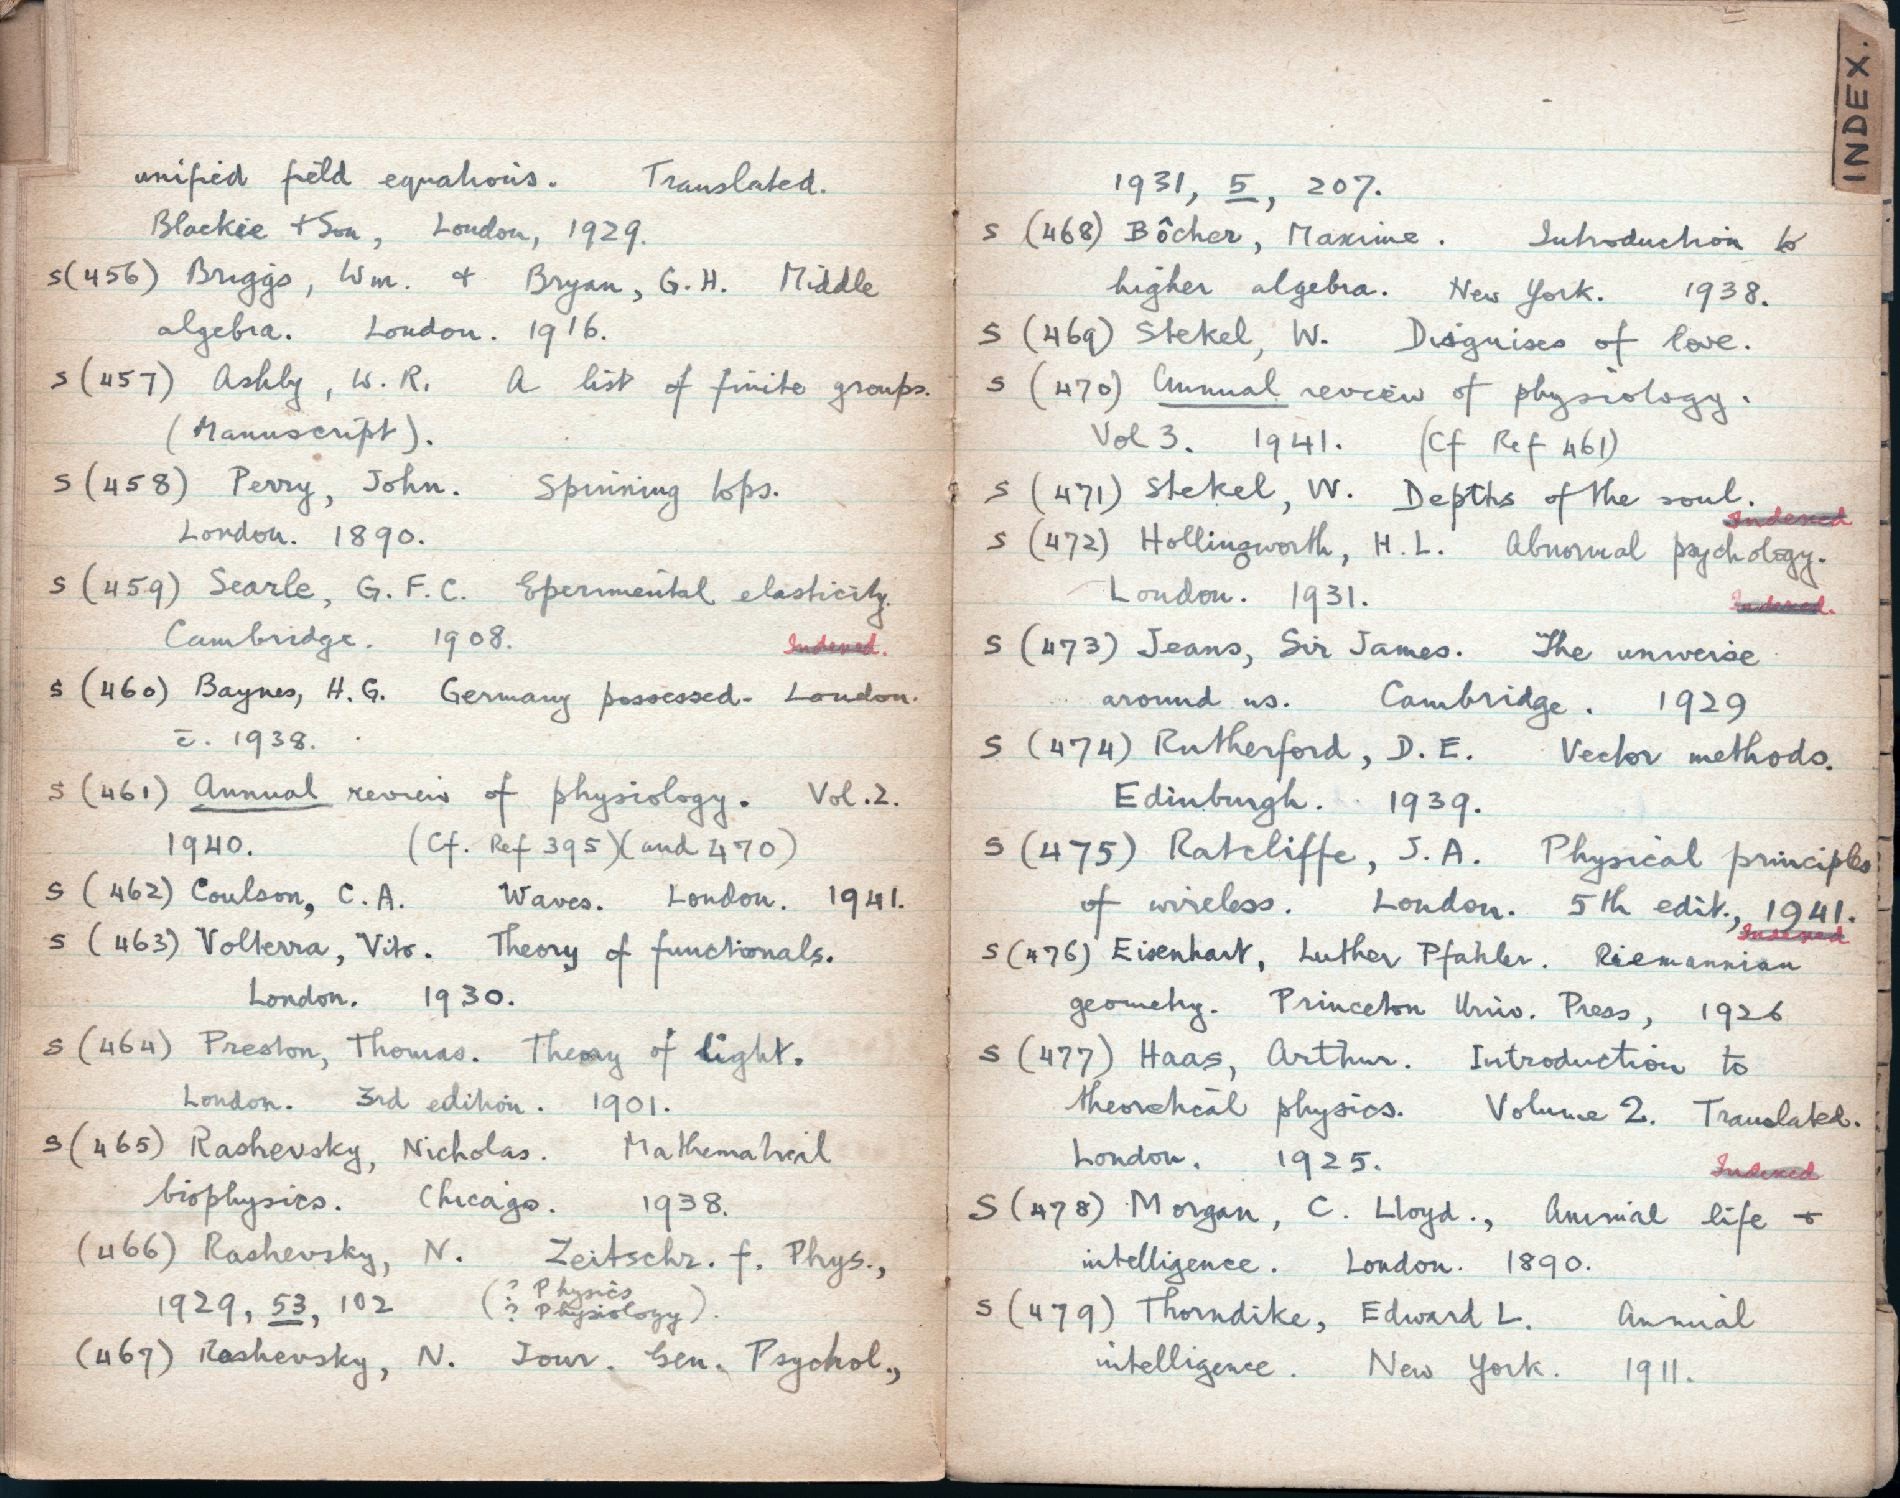 unified field equations. Translated.
Blackie + Son, London, 1929.
S (456) Briggs, Wm. + Bryan, G. H. Middle
algebra. London. 1916.
S (457) Ashby, W. R. A list of finite groups.
(Manuscript).
S (458) Perry, John. Spinning tops.
London. 1890.
S (459) Searle, G. F. C. Eperimental elasticity.
Cambridge. 1908. Indexed.
S (460) Baynes, H. G. Germany possessed. London.
c. 1938.
S (461) Annual review of physiology. Vol. 2.
1940. (Cf. Ref 395) (and 470)
S (462) Coulson, C. A. Waves. London. 1941.
S (463) Volterra, Vito. Theory of functionals.
London. 1930.
S (464) Preston, Thomas. Theory of light.
London. 3rd edition. 1901.
S (465) Rashevsky, Nicholas. Mathematical
biophysics. Chicago. 1938.
(466) Rashevsky, N. Zeitschr. f. Phys.,
1929, 53, 102 (? Physics
? Physiology).
(467) Rashevsky, N. Jour. Gen. Psychol.,
INDEX.
1931, 5, 207.
S (468) Bôcher, Maxime. Introduction to
higher algebra. New York. 1938.
S (469) Stekel, W. Disguises of love.
S (470) Annual review of physiology.
Vol 3. 1941. (Cf Ref 461)
S (471) Stekel, W. Depths of the soul.
Indexed
S (472) Hollingworth, H. L. Abnormal psychology.
London. 1931. Indexed.
S (473) Jeans, Sir James. The universe
around us. Cambridge. 1929
S (474) Rutherford, D. E. Vector methods.
Edinburgh. 1939.
S (475) Ratcliffe, J. A. Physical principles
of wireless. London. 5th edit., 1941.
Indexed
S (476) Eisenhart, Luther Pfahler. Riemannian
geometry. Princeton Univ. Press, 1926
S (477) Haas, Arthur. Introduction to
theoretical physics. Volume 2. Translated.
London. 1925. Indexed
S (478) Morgan, C. Lloyd., Animal life +
intelligence. London. 1890.
S (479) Thorndike, Edward L. Animal
intelligence. New York. 1911.